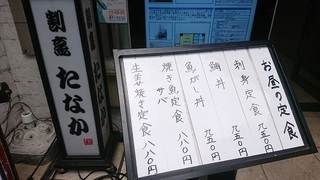 割烹
たなか
お昼の定食
刺身定食 九五〇円
鯛丼 九五〇円
魚がし丼 九五〇円
焼き魚定食 サバ 八八〇円
生姜焼き定食 八八〇円